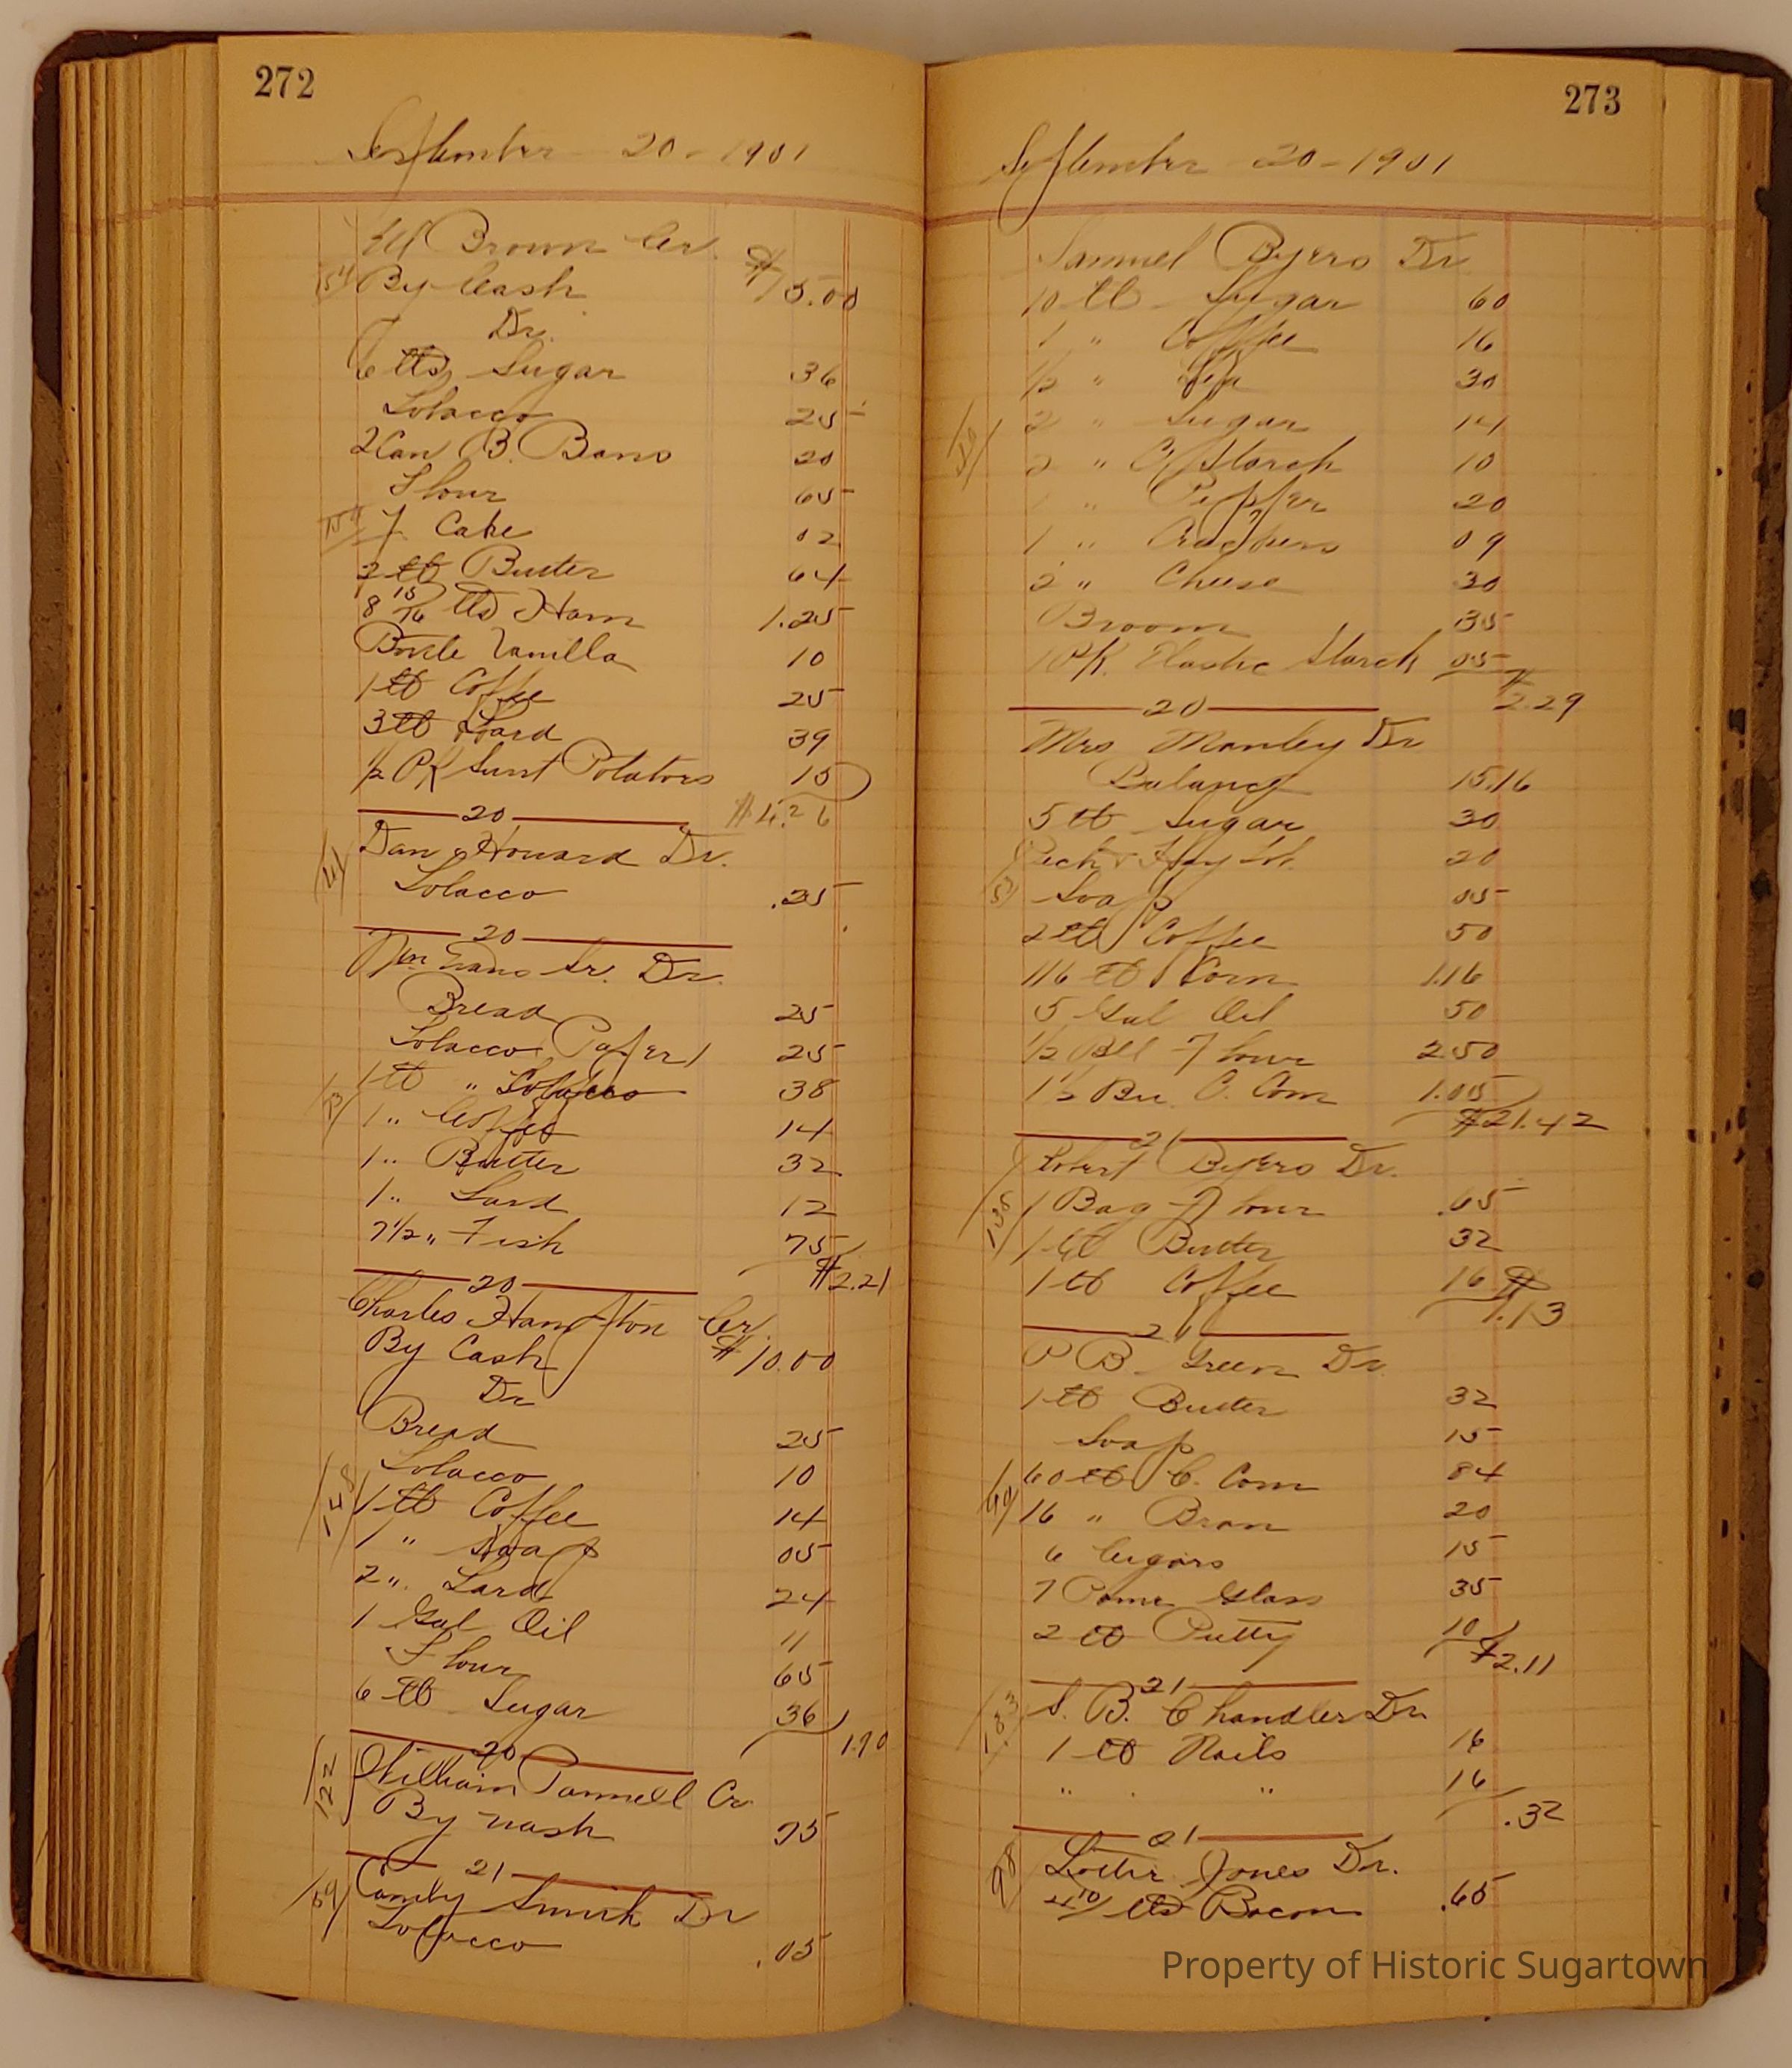 272
September 20 - 1901
W Brown Cr.
154 By Cash $5.00
Dr.
6 lbs Sugar 36
Tobacco 25
2 Can B. Bans 20
Flour 65
154 Y. Cake 02
2 lb Butter 64
8 15/16 lbs Ham 1.25
Bottle Vanilla 10
1 lb Coffee 25
3 lb Lard 39
1/2 PK Swet Potatoes 15
20 $4.26
Dan Howard Dr.
Tobacco .25
20
Wm Evans Sr. Dr.
Bread 25
Tobacco (Paper) 25
1 lb " Tobacco 38
1 " Coffee 14
1 " Butter 32
1 " Lard 12
7 1/2 " Fish 75
$2.21
20
Charles Hampton Cr.
By Cash $10.00
Dr
Bread 25
Tobacco 10
148 1 lb Coffee 14
1 " Soap 05
2 " Lard 24
1 Gal Oil 11
Flour 65
6 lb Sugar 36
1.90
20
122 William Pannell Cr
By Cash 75
21
159 Smith Dr
Tobacco .05
273
September 20 - 1901
Samuel Byers Dr
10 lb Sugar 60
1 " Coffee 16
1/2 " Tea 30
2 " Sugar 14
2 " C. Starch 10
" Pepper 20
1 " Crackers 09
2 " Cheese 30
Broom 35
1 PK. Elastic Starch 05
$2.29
20
Mrs Manley Dr
Balance 15.16
5 lb Sugar 30
20
53 Soap 05
2 lb Coffee 50
116 lb Corn 1.16
5 Gal Oil 50
1/2 Bbl Flour 2.50
1 1/2 Bu. C. Corn 1.05
$21.42
21
Robert Byers Dr.
138 1 Bag Flour .65
1 lb Butter 32
1 lb Coffee 16
$1.13
21
P B. Green Dr.
1 lb Butter 32
Soap 15
60 lb C. Corn 84
16 " Bran 20
6 Cigars 15
7 Pane Glass 35
2 lb Putty 10
$2.11
21
183 S. B. Chandler Dr
1 lb Nails 16
" " 16
.32
21
98 Jones Dr.
lbs Bacon .65
Property of Historic Sugartown